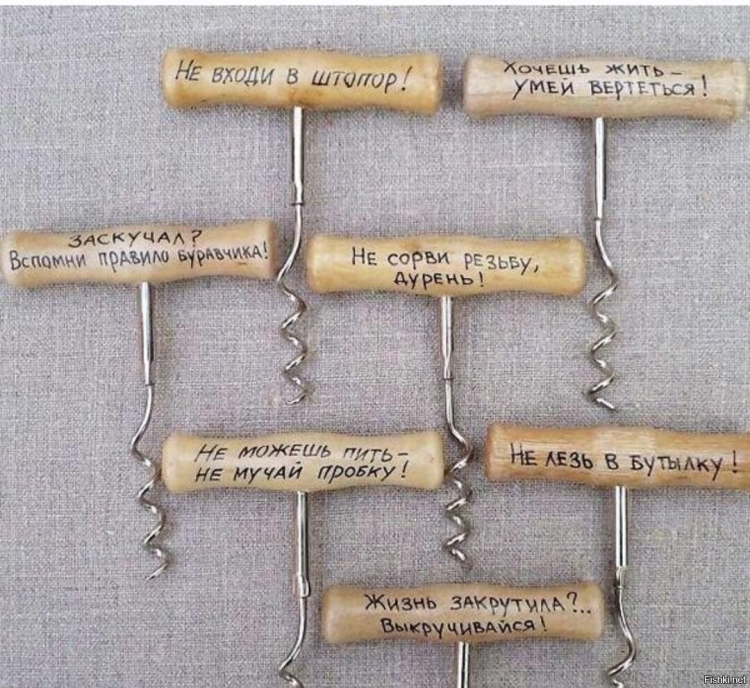 Не входи в штопор!
Хочешь жить –
умей вертеться!
Заскучал?
Вспомни правило буравчика!
Не сорви резьбу,
дурень!
Не можешь пить –
не мучай пробку!
Не лезь в бутылку!
Жизнь закрутила?..
Выкручивайся!
Fishki.net